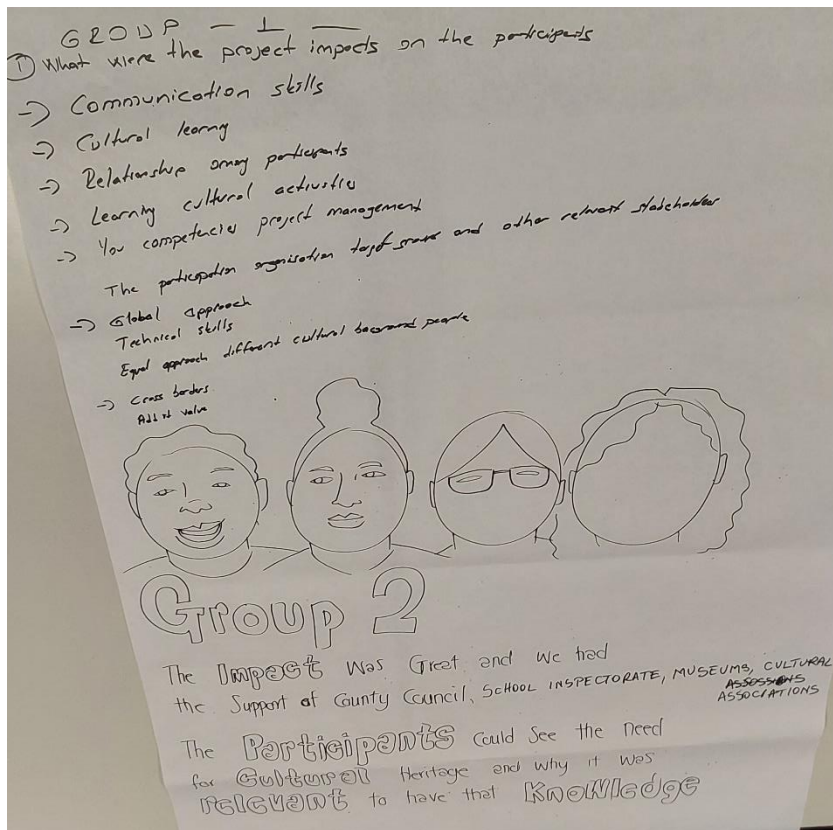 GROUP - 1
① What were the project impacts on the participants
-> Communication skills
-> Cultural learng
-> Relationship among participents
-> Learning cultural activities
-> You competencies project management
The participation organisation target and other relevant stakeholder
-> Global approach
Technical skills
Equal approach different cultural people
-> Cross borders
value
Group 2
The Impact was Great and we had
the Support of County Council, SCHOOL INSPECTORATE, MUSEUMS, CULTURAL
ASSOCIATIONS
The Participants Could See the need
for Cultural Heritage and why it was
relevant to have that Knowledge